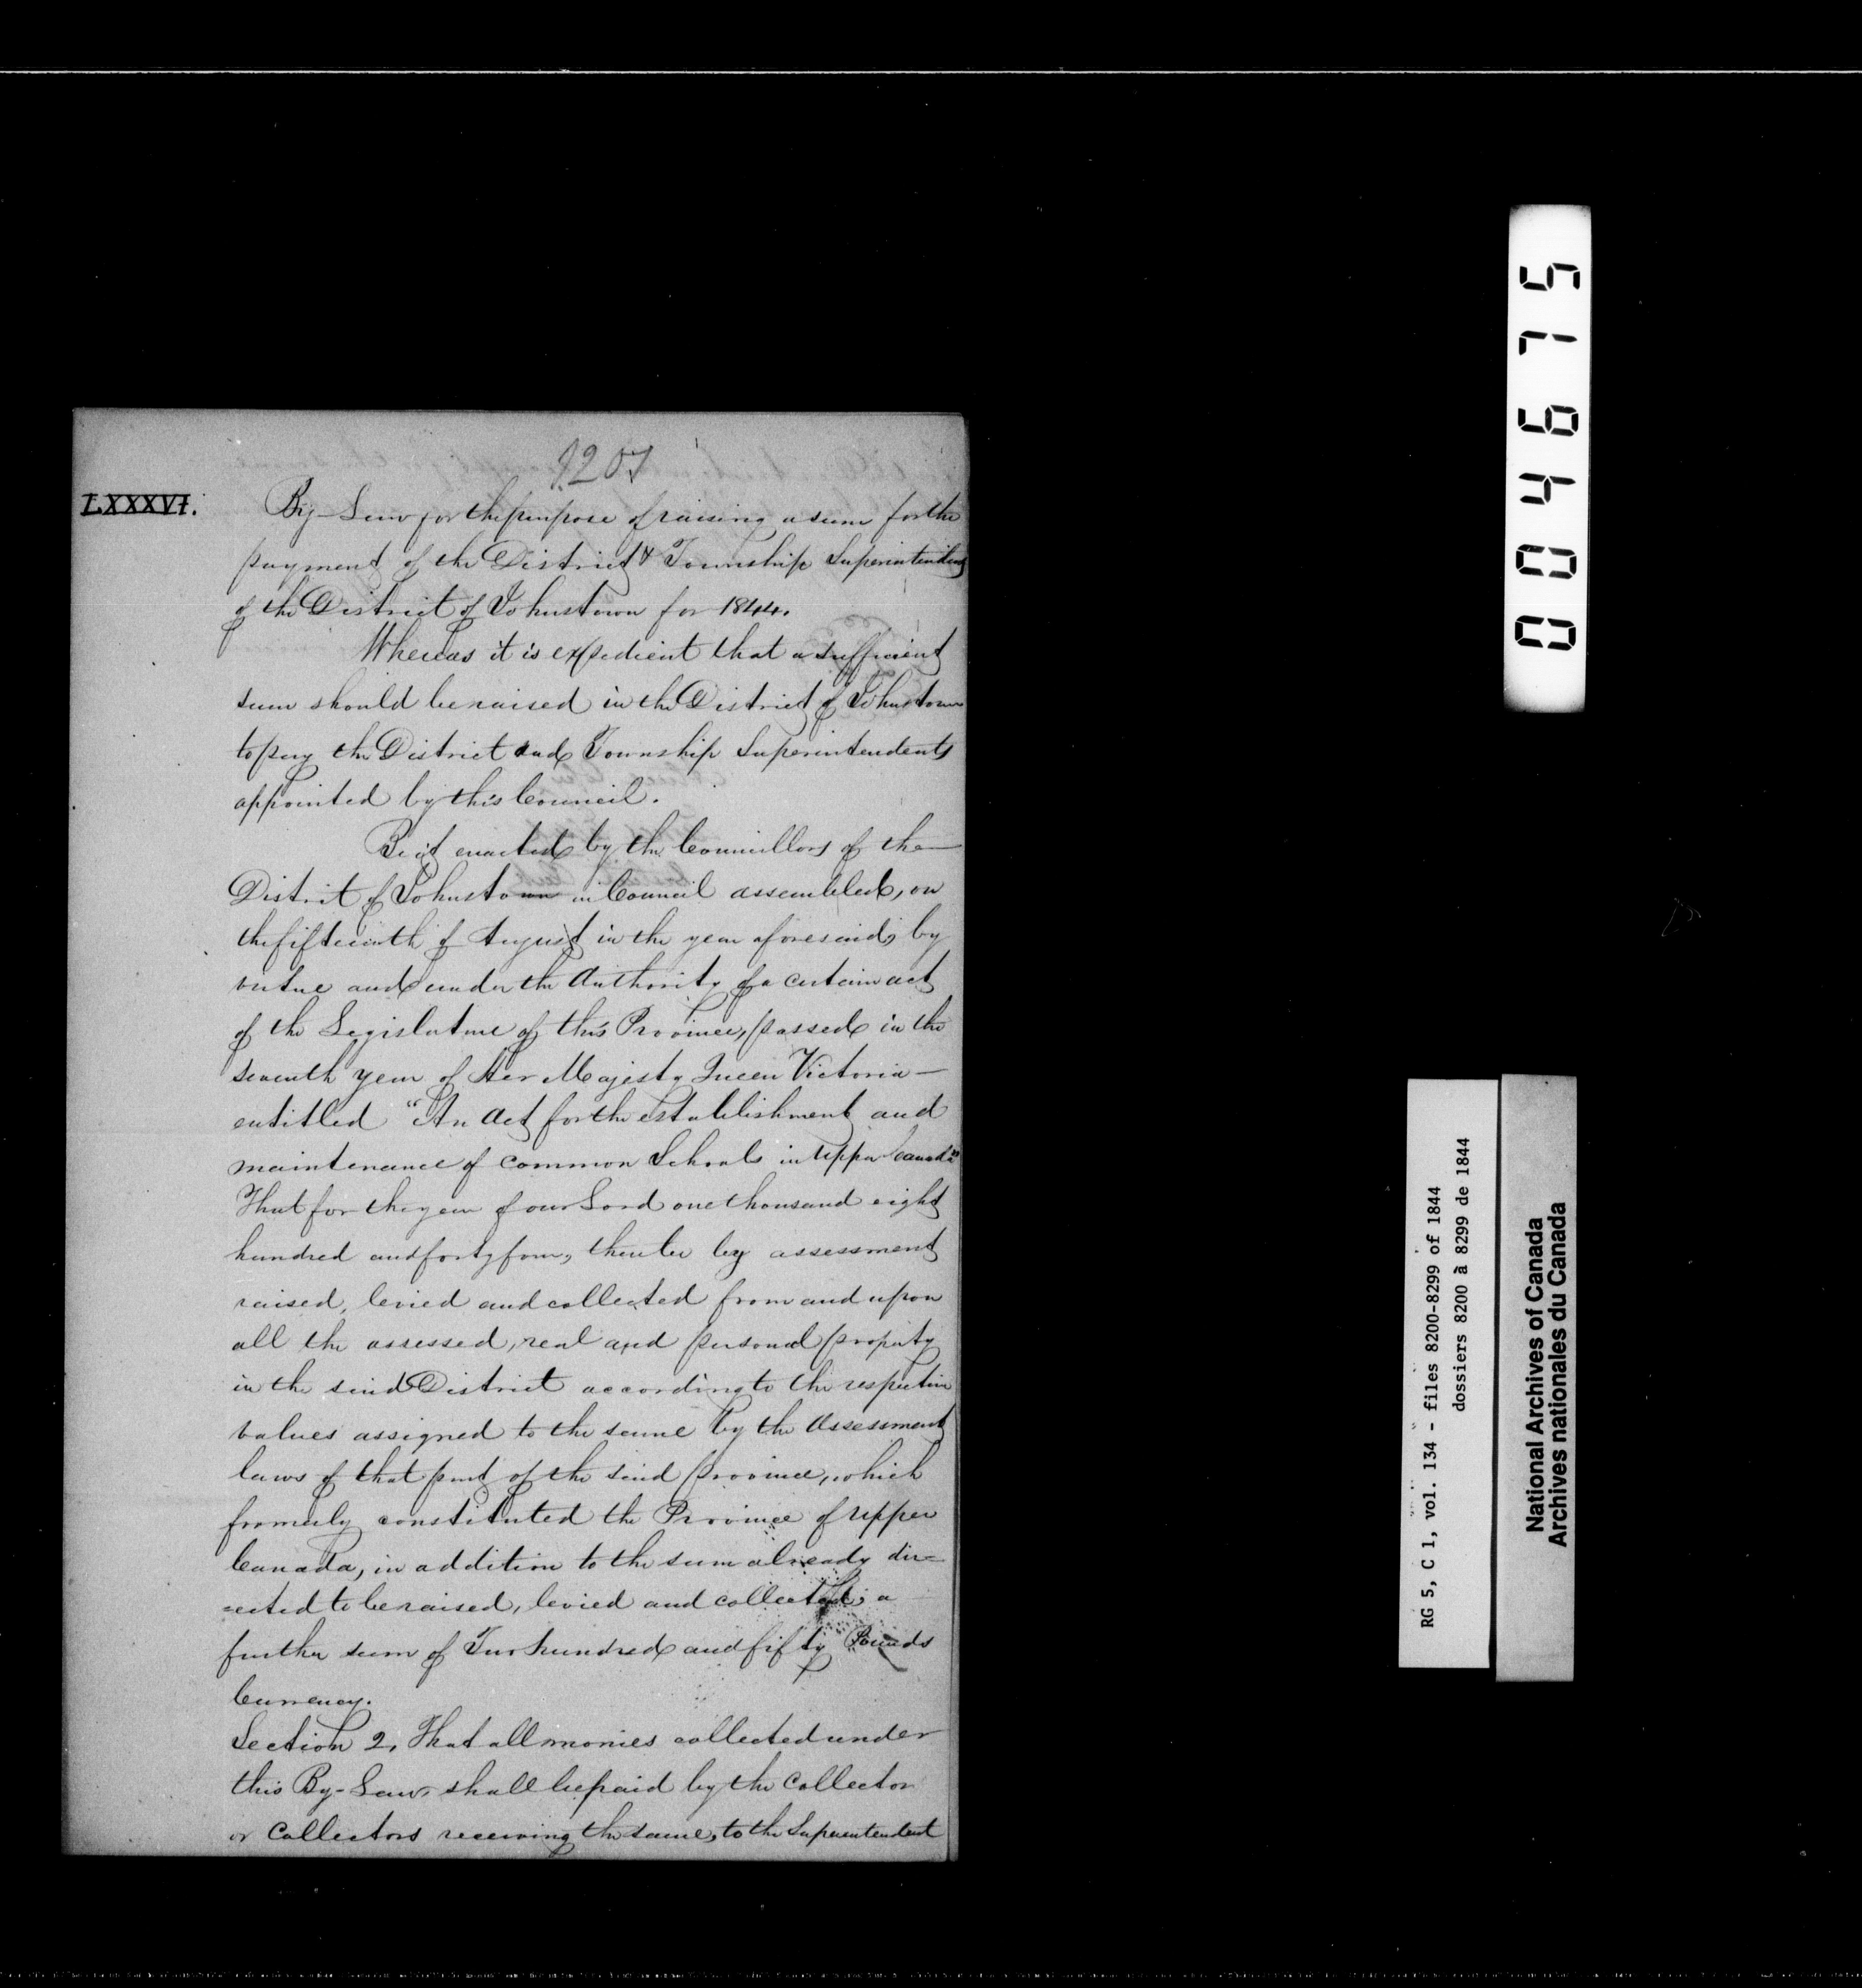 8207
LXXXVI.
By-Law for the purpose of raising a sum for the
payment of the District & Township Superintendents
of the District of Johnstown for 1844.
Whereas it is expedient that a sufficient
sum should be raised in the District of Johnstown
to pay the District and Township Superintendents
appointed by this Council.
Be it enacted by the Councillors of the
Distrit of Johnstown in Council assembled, on
the fifteenth of August in the year aforesaid, by
virtue and under the Authority of a certain act
of the Legislature of this Province, passed in the
seventh year of Her Majesty Queen Victoria —
entitled "An Act for the establishment and
maintenance of Common Schools in Upper Canada"
That for the year of our Lord one thousand eight
hundred and forty four, there be by assessment
raised, levied and collected from and upon
all the assessed, real and personal property
in the said District according to the respective
values assigned to the same by the Assessment
laws of that part of the said province, which
formerly constituted the Province of Upper
Canada, in addition to the sum already dir=
=ected to be raised, levied and collected, a
further sum of Two hundred and fifty Pounds
Currency.
Section 2. That all monies collected under
this By-Law shall be paid by the Collector
or Collectors receiving the same, to the Superintendent
0046715
RG 5, C 1, vol. 134 - files 8200-8299 of 1844
dossiers 8200 à 8299 de 1844
National Archives of Canada
Archives nationales du Canada